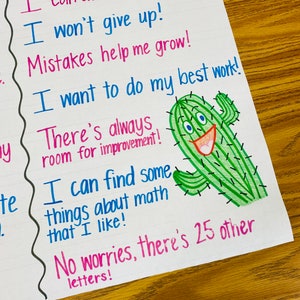 I can
I won't give up!
Mistakes help me grow!
I want to do my best work!
There's always
room for improvement!
I can find some
things about math
that I like!
No worries, there's 25 other
letters!